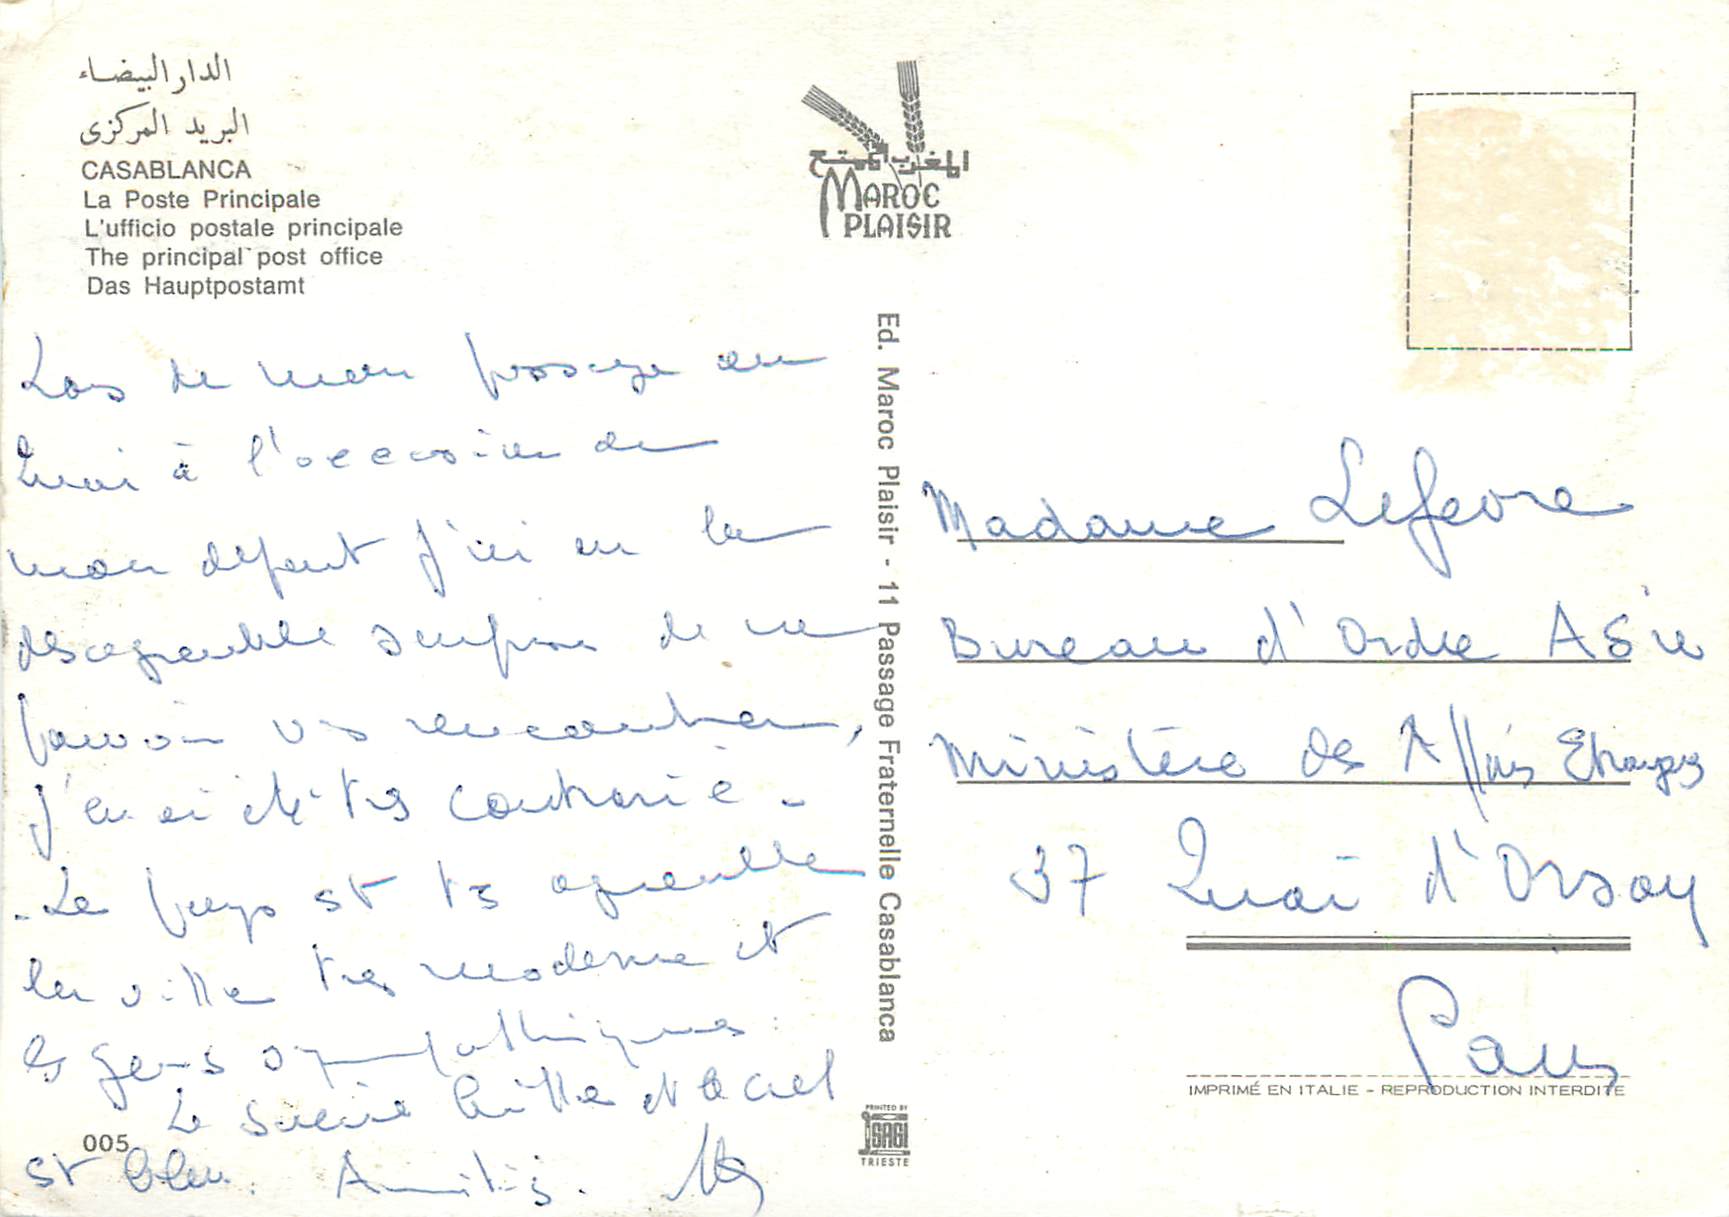 الدار البيضاء
البريد المركزى
CASABLANCA
La Poste Principale
L'ufficio postale principale
The principal post office
Das Hauptpostamt
المغرب الممتع
MAROC
PLAISIR
Lors de mon passage au
Quai à l'occasion de
mon départ j'ai eu la
désagréable surprise de ne
pouvoir vs rencontrer,
j'en ai été très contrarié -
- Le pays est très agréable
la ville très moderne et
les gens sympathiques.
Le soleil brille et le ciel
est bleu. Amitiés.
005
Ed. Maroc Plaisir - 11 Passage Fraternelle Casablanca
Madame Lefevre
Bureau d'Ordre Asie
Ministère des Affaires Etrangères
37 Quai d'Orsay
Paris
IMPRIMÉ EN ITALIE - REPRODUCTION INTERDITE
PRINTED BY
SAGI
TRIESTE